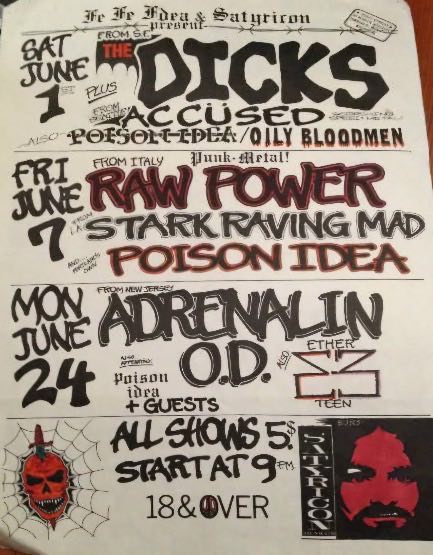 Fe Fe Fdea & Satyricon
present
SAT
JUNE
1ST
FROM S.F.
THE DICKS
PLUS
FROM SEATTLE
ACCÜSED
SCREECHING
SPEED METAL
ALSO
POISON IDEA/OILY BLOODMEN
FRI
JUNE
7
FROM ITALY
Punk-Metal!
RAW POWER
FROM L.A.
STARK RAVING MAD
AND... PORTLAND'S OWN
POISON IDEA
MON
JUNE
24
FROM NEW JERSEY
ADRENALIN
O.D.
ALSO
APPEARING
Poison
idea
+ GUESTS
ALSO
ETHER
TEEN
ALL SHOWS 5$
START AT 9PM
18 & OVER
SATYRICON